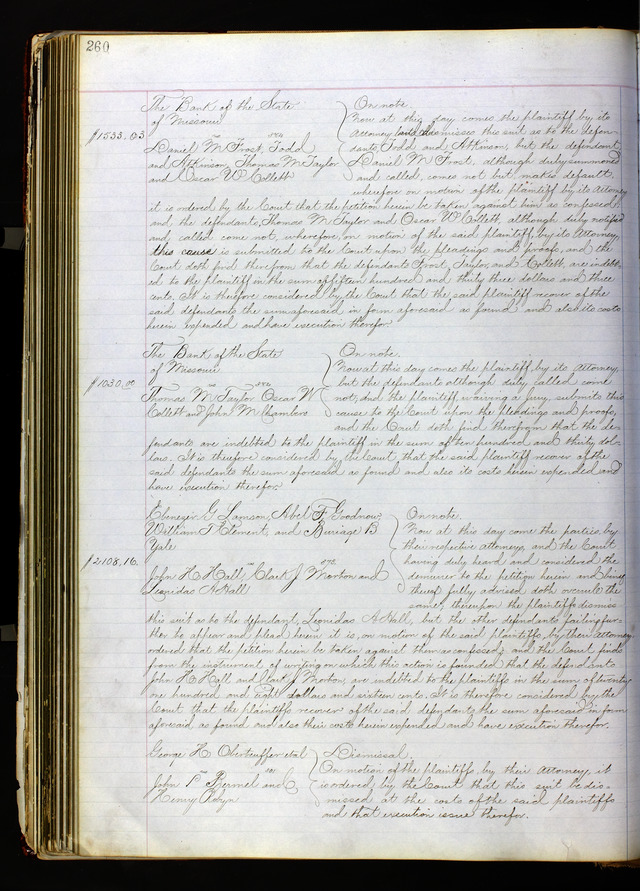 260
The Bank of the State
of Missouri
$1533.03
vs
Daniel M Frost, Todd
and Atkinson, Thomas M Taylor
and Oscar W Collett
On note.
Now at this day comes the plaintiff by its
Attorney and dismisses this suit as to the defen-
dants Todd and Atkinson, but the defendant
Daniel M Frost, although duly summoned
and called, comes not but makes default.
wherefore on motion of the plaintiff by its Attorney
it is ordered by the Court that the petition herein be taken against him as confessed;
and the defendants, Thomas M Taylor and Oscar W Collett although duly notified
and called come not, wherefore, on motion of the said plaintiff by its Attorney,
this cause is submitted to the Court upon the pleadings and proofs, and the
Court doth find therefrom that the defendants Frost, Taylor, and Collett, are indebt-
ed to the plaintiff in the sum of fifteen hundred and thirty three dollars and three
cents. It is therefore considered by the Court that the said plaintiff recover of the
said defendants the sum aforesaid in form aforesaid as found and also its costs
herein expended and have execution therefor.
The Bank of the State
of Missouri
$1030.00
vs
Thomas M Taylor Oscar W
Collett and John M Chambers
On note.
Now at this day comes the plaintiff by its Attorney,
but the defendants although duly called come
not, and the plaintiff waiving a jury, submits this
cause to the Court upon the pleadings and proofs,
and the Court doth find therefrom that the de-
fendants are indebted to the plaintiff in the sum of ten hundred and thirty dol-
lars. It is therefore considered by the Court that the said plaintiff recover of the
said defendants the sum aforesaid as found and also its costs herein expended and
have execution therefor.
Ebenezer G Lamson, Abel F Goodnow,
William T Clement, and B
Yale
$2108.16.
vs
John H Hall, Clark J Morton and
Leonidas A Hall
On note.
Now at this day come the parties by
their respective attorneys, and the Court
having duly heard and considered the
demurrer to the petition herein and being
thereof fully advised doth overrule the
same, thereupon the plaintiffs dismiss
this suit as to the defendant, Leonidas A Hall, but the other defendants failing fur-
ther to appear and plead herein it is, on motion of the said plaintiffs, by their Attorney
ordered that the petition herein be taken against them as confessed; and the Court finds
from the instrument of writing on which this action is founded that the defendants
John H Hall and Clark J Morton, are indebted to the plaintiffs in the sum of twenty
one hundred and eight dollars and sixteen cents. It is therefore considered by the
Court that the plaintiffs recover of the said defendants the sum aforesaid in form
aforesaid as found and also their costs herein expended and have execution therefor.
George H Oberteuffer et al
vs
John P and Co
Henry Robyn
Dismissal.
On motion of the plaintiffs by their Attorney, it
is ordered by the Court that this suit be dis-
missed at the costs of the said plaintiffs
and that execution issue therefor.